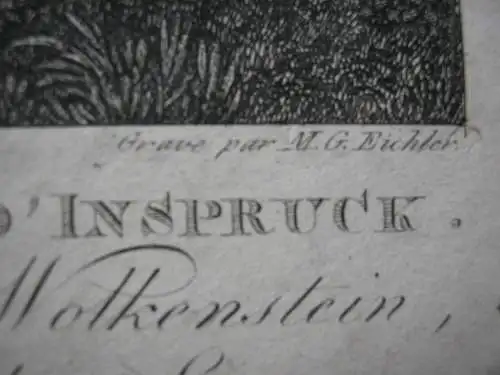 Gravé par M. G. Eichler
D'INSPRUCK.
Wolkenstein,